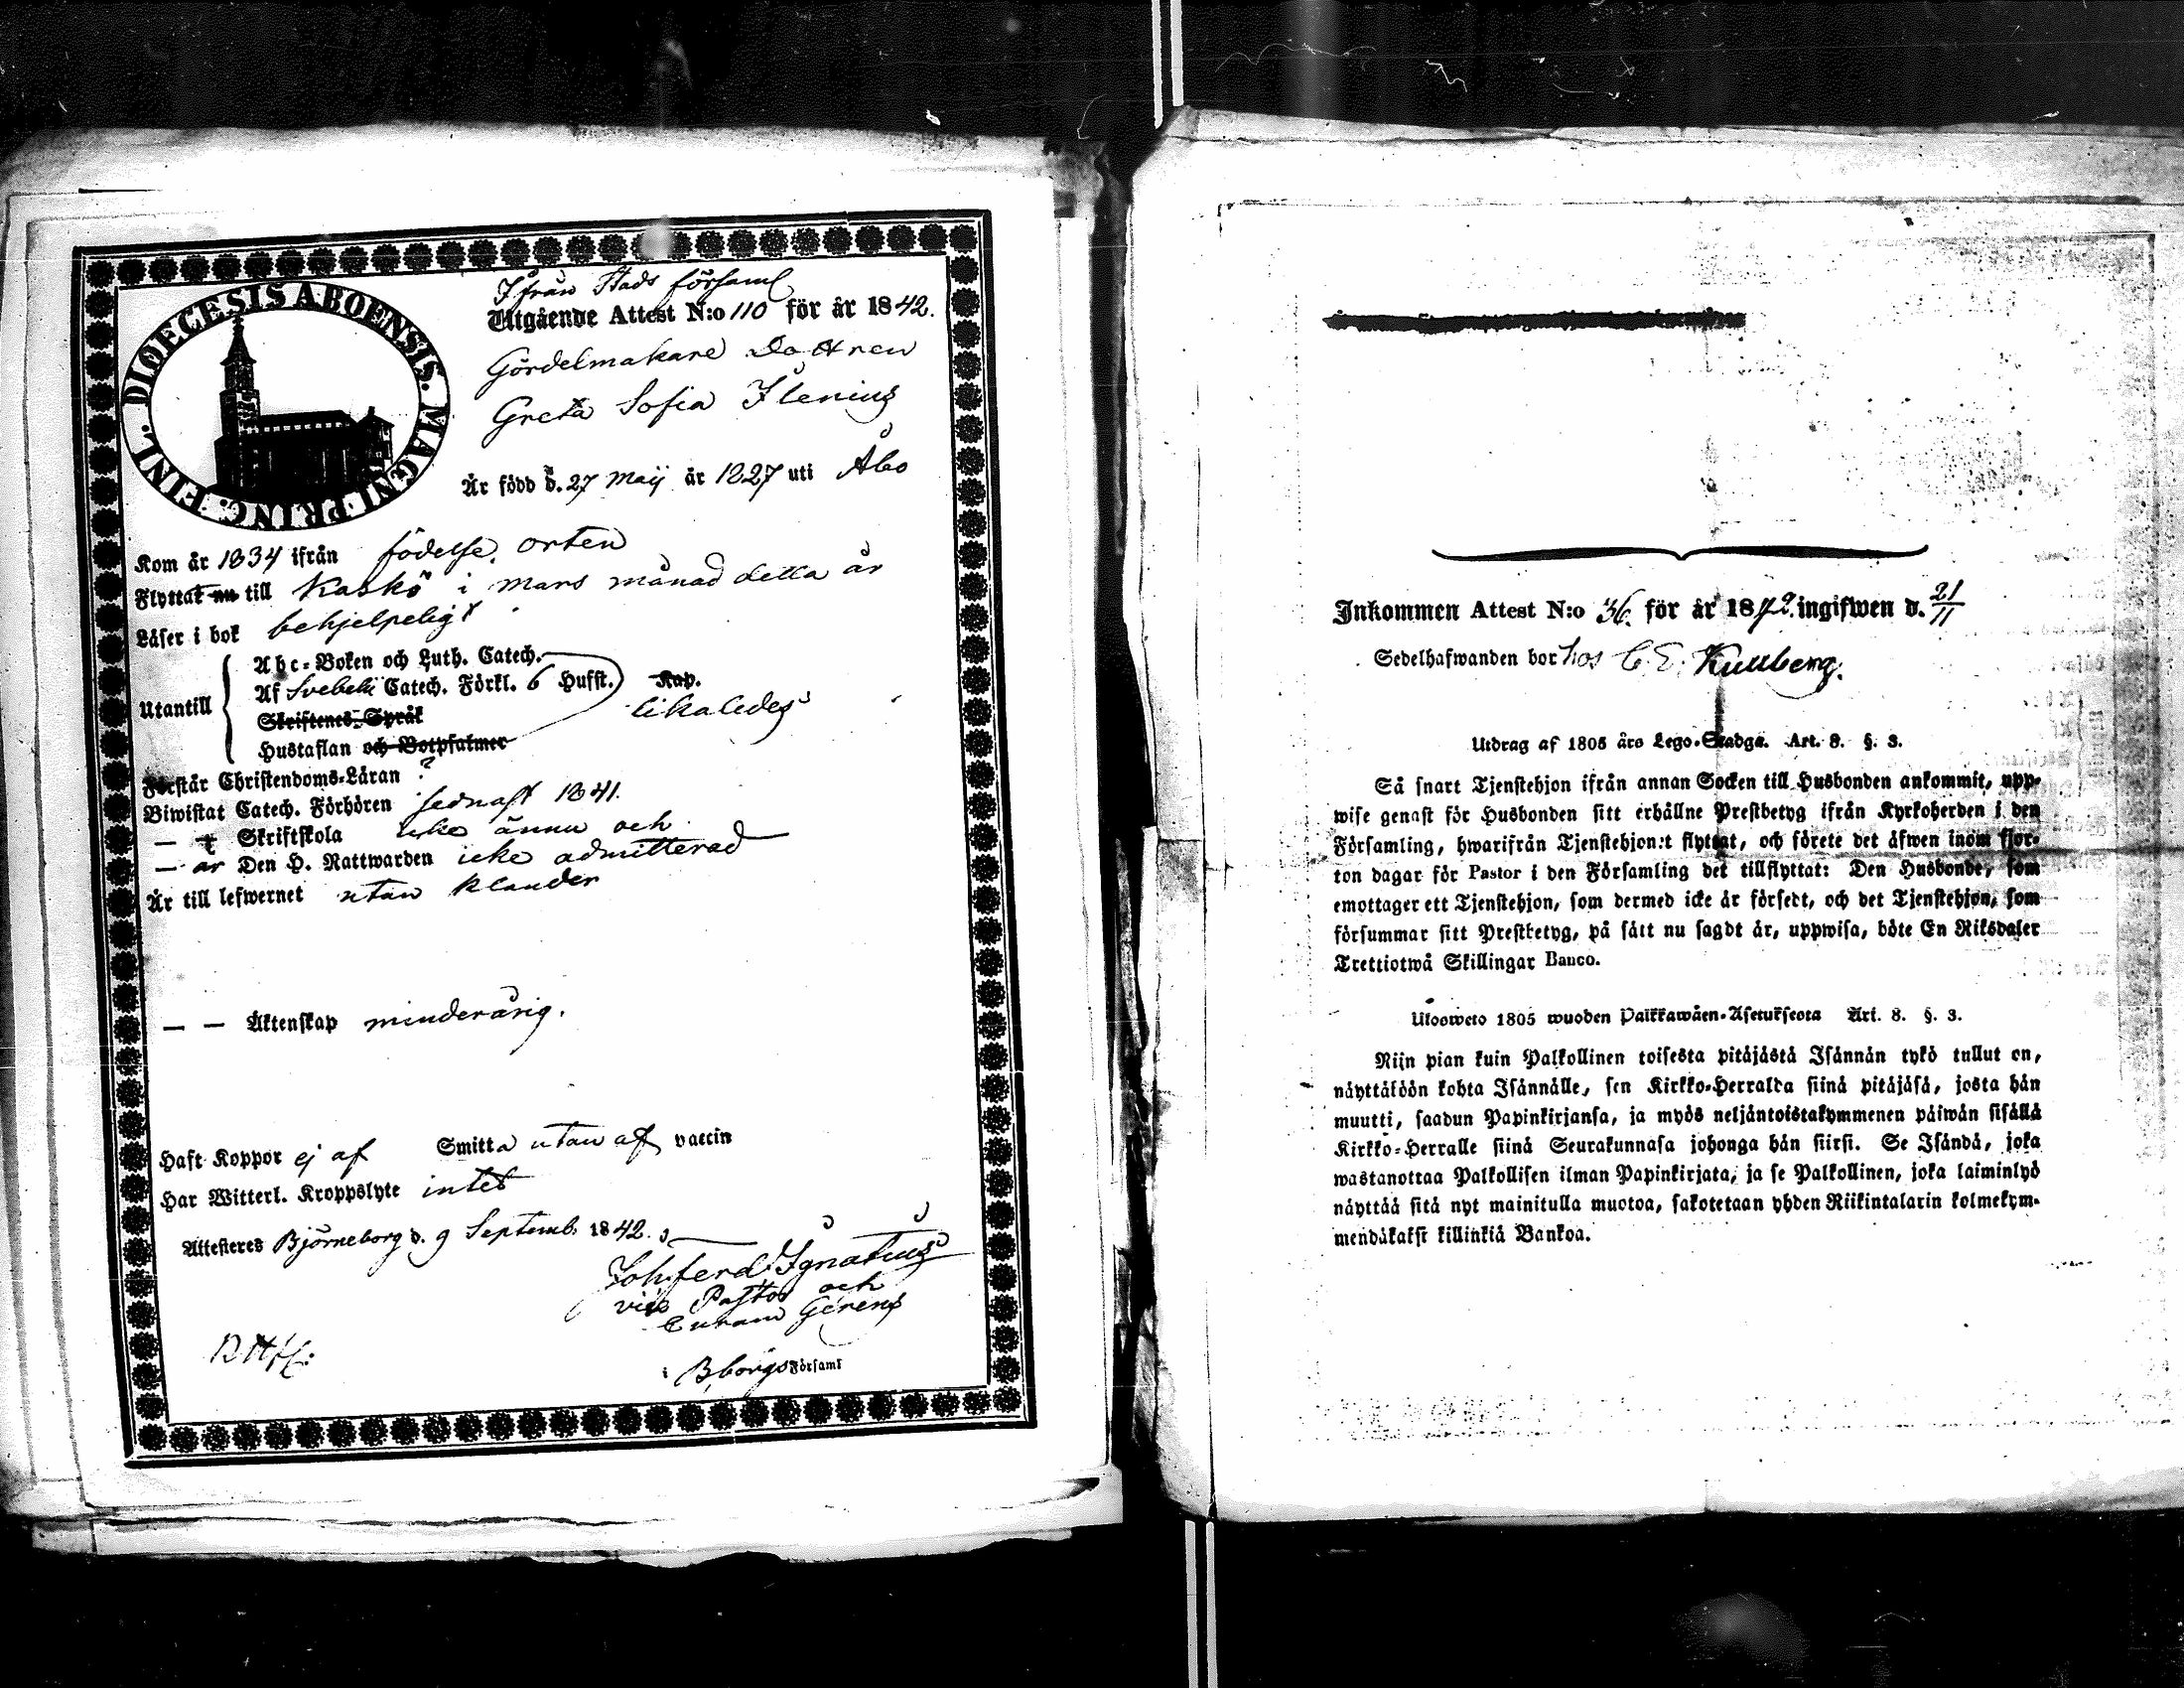 DIOECESIS ABOENSIS. MAGNI PRINC. FINL.
Ifrån Stads församl
Utgående Attest N:o 110 för år 1842.
Gördelmakare Dottren
Greta Sofia Ilenius
Är född d. 27 Maij år 1827 uti Åbo
Kom år 1834 ifrån födelse orten
Flyttat nu till Kaskö i Mars månad detta år
Läser i bok behjelpeligt
Utantill
Abc-Boken och Luth. Catech.
Af Svebelii Catech. Förkl. 6 Hufst. Kap.
Skriftenes Språk likaledes
Hustaflan och Botpsalmer
Förstår Christendoms-Läran ?
Biwistat Catech. Förhören sednast 1841.
— t Skriftskola icke ännu och
— är Den H. Nattwarden icke admitterad
Är till lefwernet utan klander
— — Äktenskap minderårig.
Haft Koppor ej af Smitta utan af vaccin
Har Witterl. Kroppslyte intet
Attesteres Björneborg d. 9 Septemb. 1842.
Joh. Ferd. Ignatius
vice Pastor och
Curam Gerens
i B,borgs Församl
Inkommen Attest N:o 36. för år 1842. ingifwen d. 21/11
Sedelhafwanden bor hos C. E. Kullberg.
Utdrag af 1805 års Lego-Stadga. Art. 8. §. 3.
Så snart Tjenstehjon ifrån annan Socken till Husbonden ankommit, upp-
wise genast för Husbonden sitt erhållne Prestbetyg ifrån Kyrkoherden i den
Församling, hwarifrån Tjenstehjon:t flyttat, och förete det äfwen inom fjor-
ton dagar för Pastor i den Församling det tillflyttat: Den Husbonde, som
emottager ett Tjenstehjon, som dermed icke är försedt, och det Tjenstehjon, som
försummar sitt Prestbetyg, på sätt nu sagdt är, uppwisa, böte En Riksdaler
Trettiotwå Skillingar Banco.
Ulosweto 1805 wuoden Palkkawäen-Asetuksesta Art. 8. §. 3.
Niin pian kuin Palkollinen toisesta pitäjästä Isännän tykö tullut on,
näyttäköön kohta Isännälle, sen Kirkko-Herralda siinä pitäjäsä, josta hän
muutti, saadun Papinkirjansa, ja myös neljäntoistakymmenen päiwän sisällä
Kirkko-Herralle siinä Seurakunnasa johonga hän siirsi. Se Isändä, joka
wastanottaa Palkollisen ilman Papinkirjata, ja se Palkollinen, joka laiminlyö
näyttää sitä nyt mainitulla muotoa, sakotetaan yhden Riikintalarin kolmekym-
mendäkaksi killinkiä Bankoa.